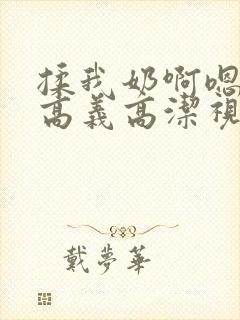 揉我奶啊嗯
高義高潔視
戴夢華